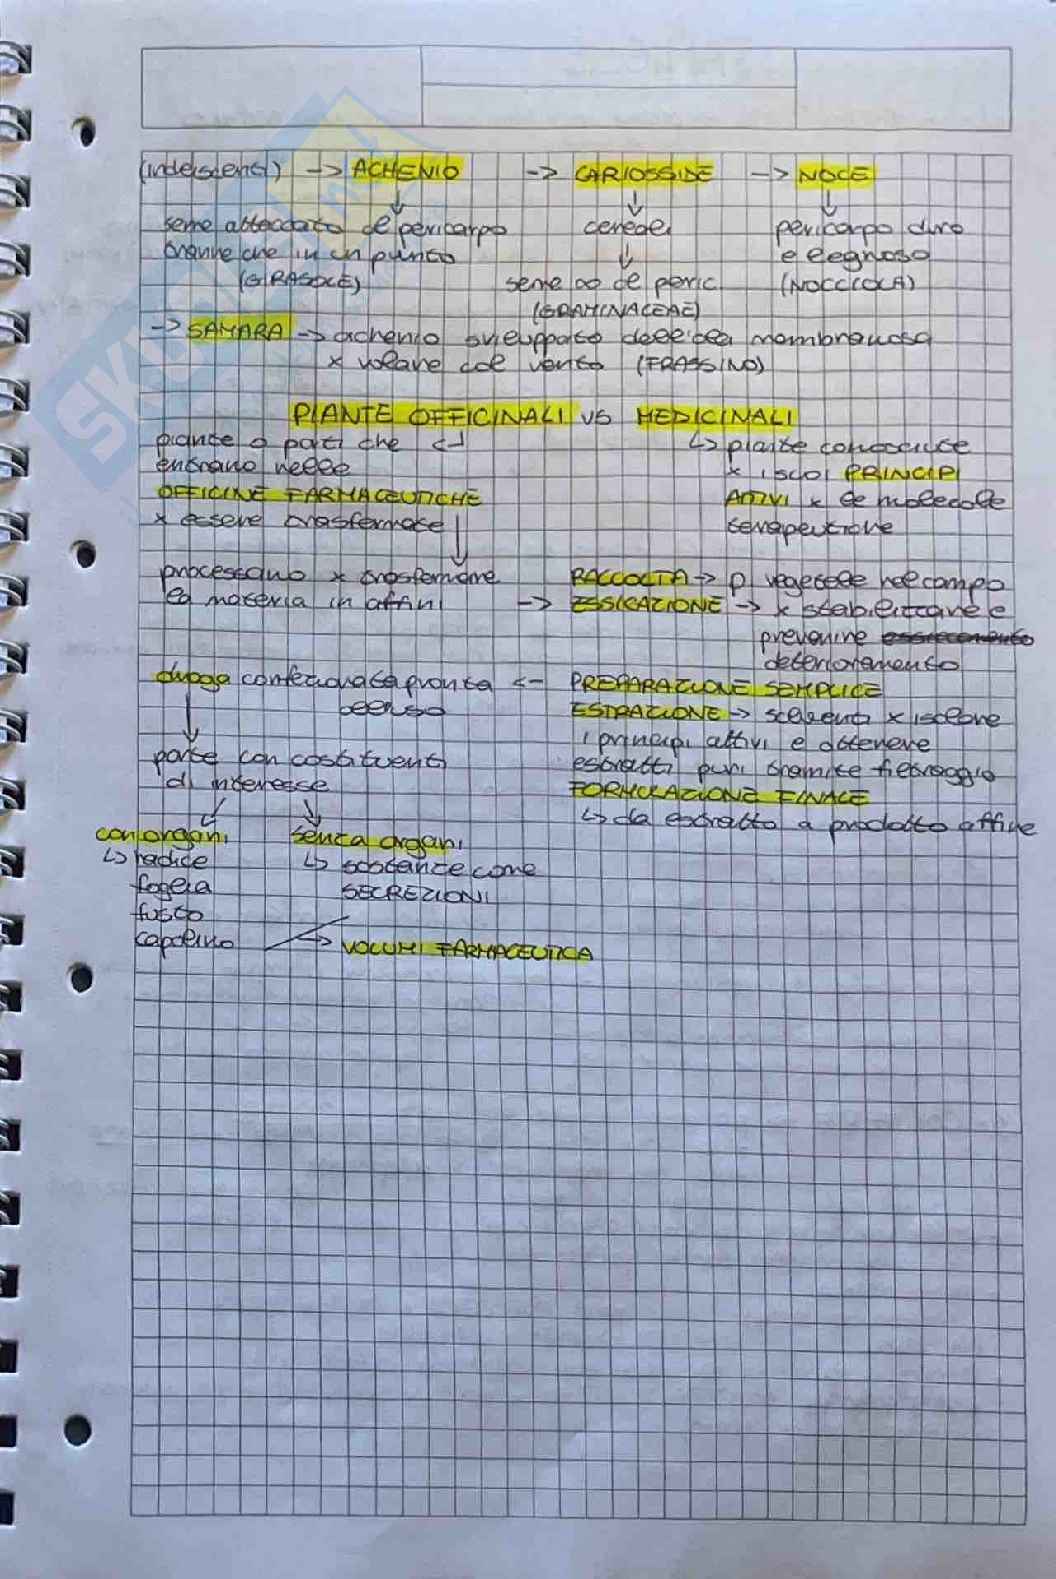 (indeiscenti) -> ACHENIO -> CARIOSSIDE -> NOCE
seme attaccato al pericarpo
tranne che in un punto
(GIRASOLE)
cereali
seme al peric.
(GRAMINACEAE)
pericarpo duro
e legnoso
(NOCCIOLA)
-> SAMARA -> achenio sviluppato dall'ala membranosa
x volare col vento (FRASSINO)
PIANTE OFFICINALI vs MEDICINALI
piante o parti che
entrano nelle
OFFICINE FARMACEUTICHE
x essere trasformate
↳ piante conosciute
x i suoi PRINCIPI
ATTIVI x le molecole
terapeutiche
processano x trasformare
la materia in affini
RACCOLTA -> p. vegetale nel campo
-> ESSICAZIONE -> x stabilizzare e
prevenire
deterioramento
droga confezionata pronta
all'uso
<- PREPARAZIONE SEMPLICE
ESTRAZIONE -> solventi x isolare
i principi attivi e ottenere
estratti puri tramite filtraggio
FORMULAZIONE FINALE
↳ da estratto a prodotto affine
parte con costituenti
di interesse
con organi
↳ radice
foglia
fusto
capolino
senza organi
↳ sostanze come
SECREZIONI
-> VOLUMI FARMACEUTICA
SKUOLA